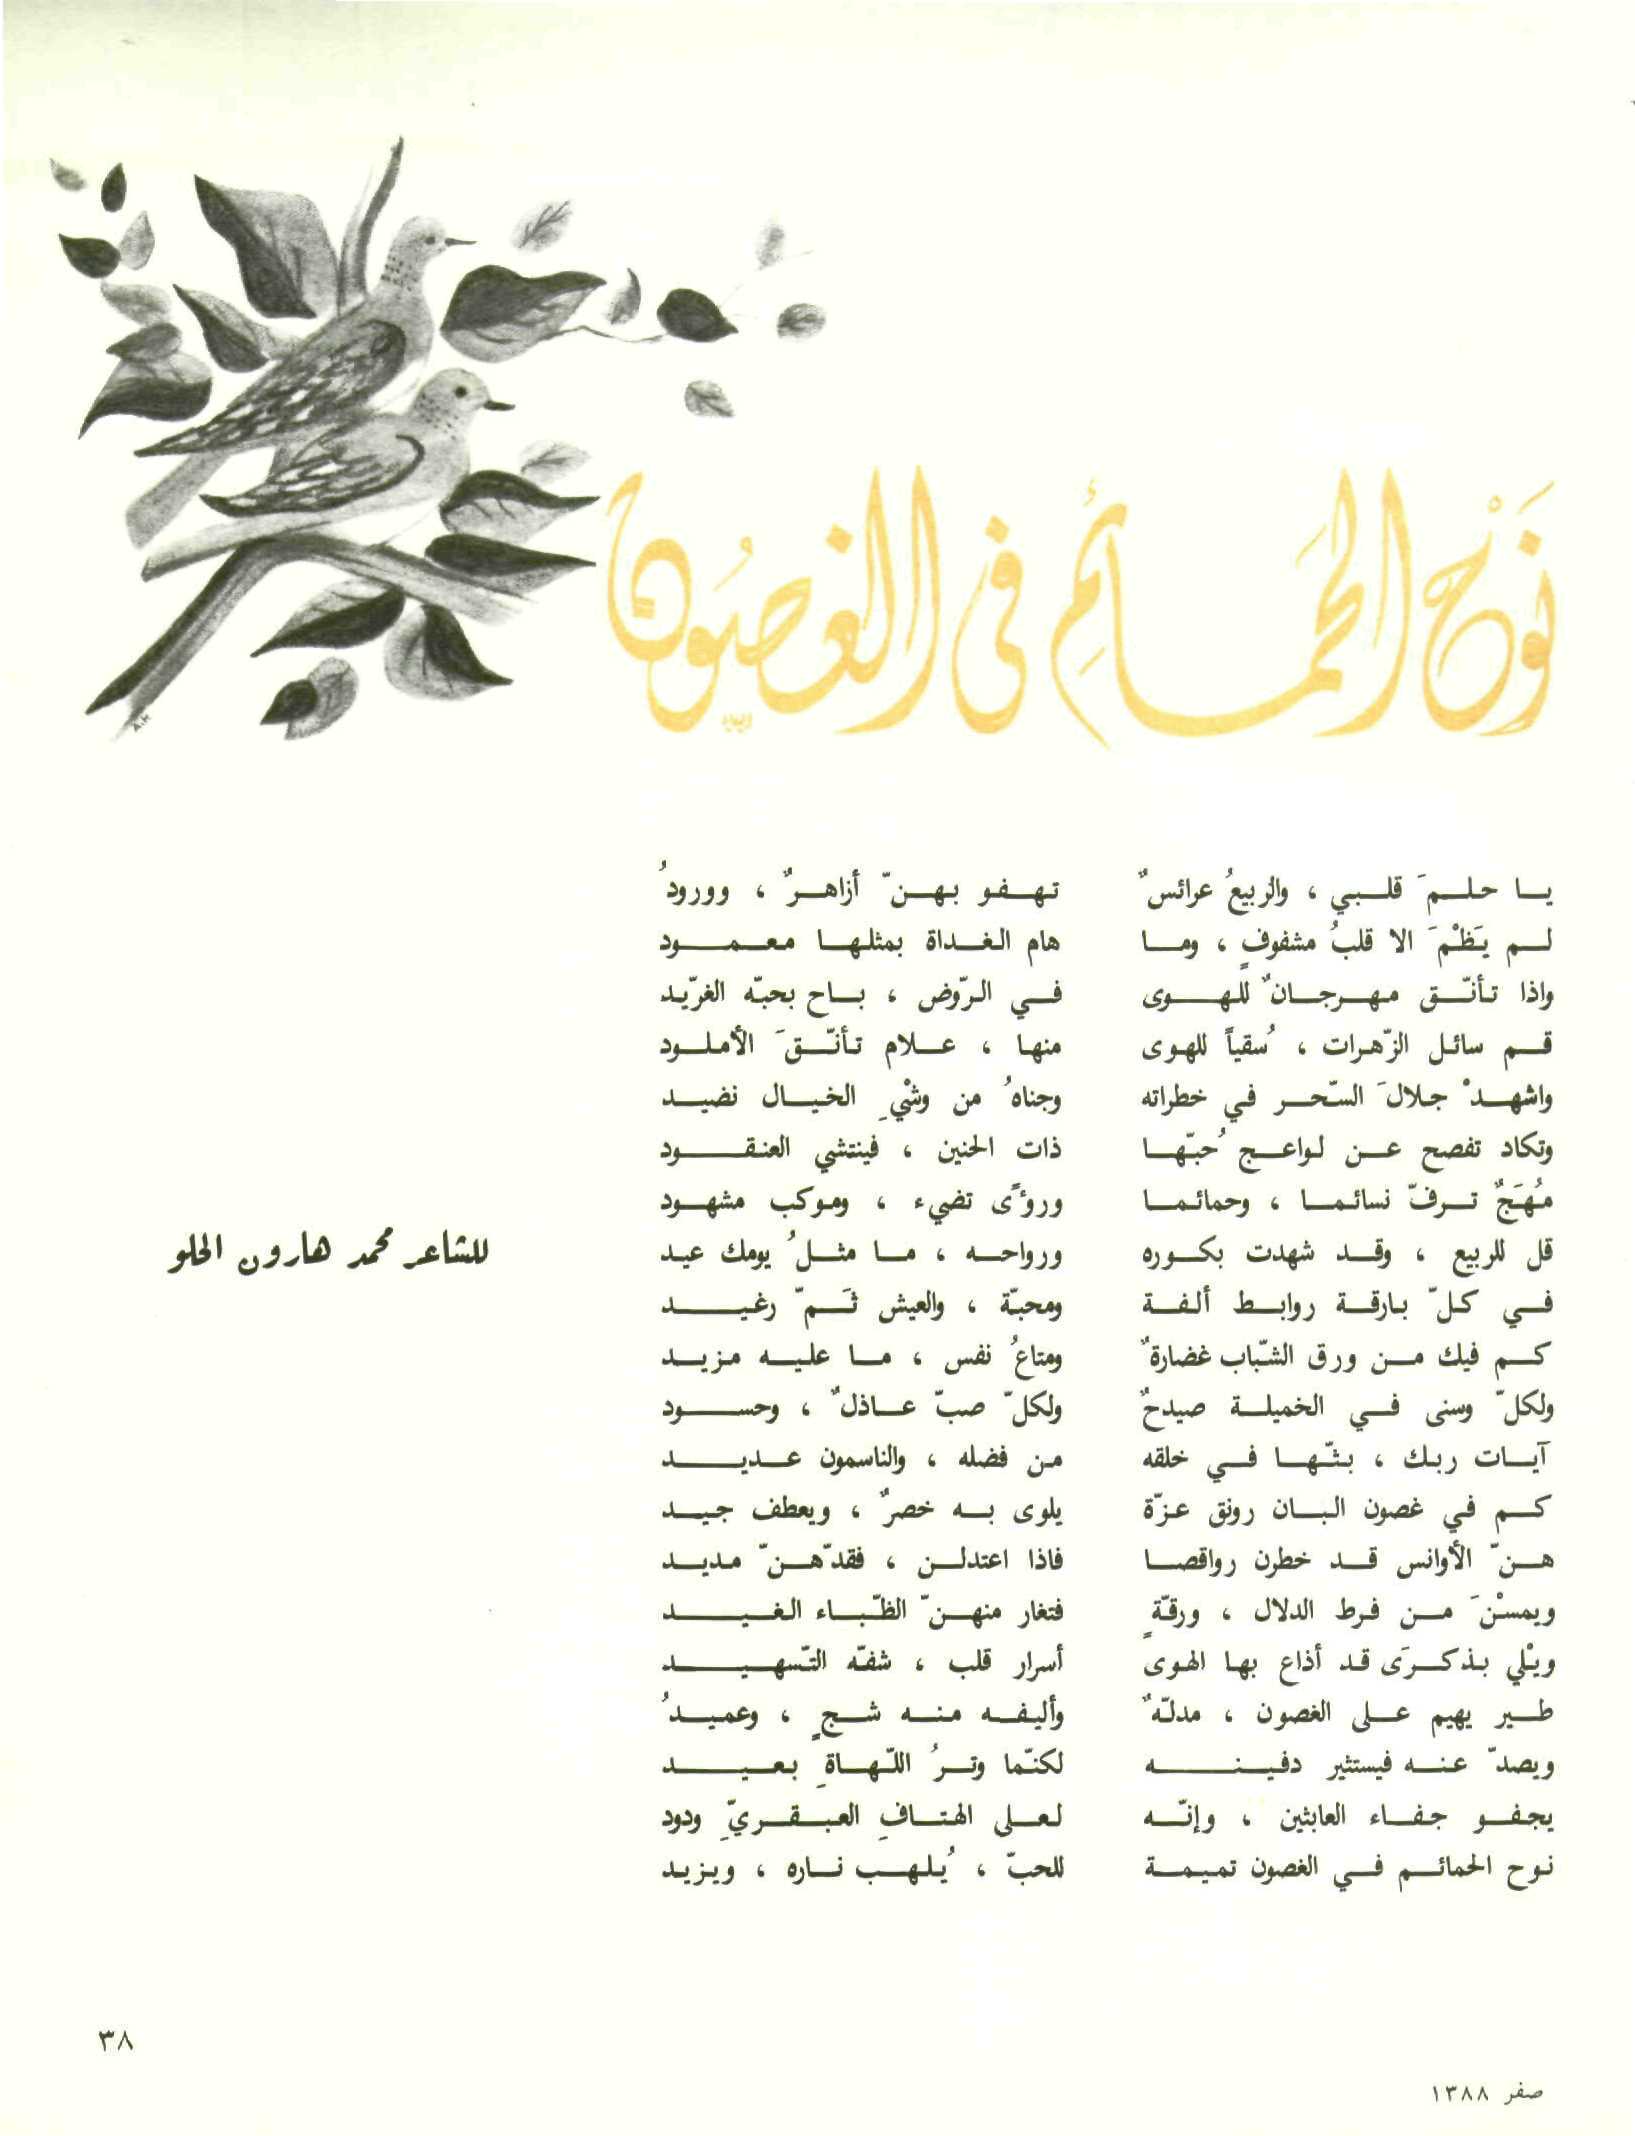 نَوْحُ الحَمَائِمِ فى الغُصُون
يا حلمَ قلبي ، والربيعُ عرائسٌ تهفو بهنّ أزاهرٌ ، وورودُ
لم يَظْمَ الا قلبُ مشفوفٍ ، وما هام الغداة بمثلها معمود
واذا تأنّق مهرجانٌ للهوى في الرّوض ، باح بحبّه الغرّيد
قم سائل الزّهرات ، سُقياً للهوى منها ، علام تأنّقَ الأملود
واشهدْ جلالَ السّحر في خطراته وجناهُ من وشْيِ الخيال نضيد
وتكاد تفصح عن لواعج حُبّها ذات الحنين ، فينتشي العنقود
مُهَجٌ ترفّ نسائما ، وحمائما ورؤًى تضيء ، وموكب مشهود
قل للربيع ، وقد شهدت بكوره ورواحه ، ما مثلُ يومك عيد
في كلّ بارقة روابط ألفة ومحبّة ، والعيش ثَمّ رغيد
كم فيك من ورق الشّباب غضارةٌ ومتاعُ نفس ، ما عليه مزيد
ولكلّ وسنى في الخميلة صيدحٌ ولكلّ صبّ عاذلٌ ، وحسود
آيات ربك ، بثّها في خلقه من فضله ، والناسمون عديد
كم في غصون البان رونق عزّة يلوى به خصرٌ ، ويعطف جيد
هنّ الأوانس قد خطرن رواقصا فاذا اعتدلن ، فقدّهنّ مديد
ويمسْنَ من فرط الدلال ، ورقّةٍ فتغار منهنّ الظّباء الغيد
ويْلي بذكرَى قد أذاع بها الهوى أسرار قلب ، شفّه التّسهيد
طير يهيم على الغصون ، مدلّهٌ وأليفه منه شجٍ ، وعميدُ
ويصدّ عنه فيستثير دفينه لكنّما وترُ اللّهاةِ بعيد
يجفو جفاء العابثين ، وإنّه لعلى الهتافِ العبقريّ ودود
نوح الحمائم في الغصون تميمة للحبّ ، يُلهب ناره ، ويزيد
للشاعر محمد هارون الحلو
٣٨
صفر ١٣٨٨